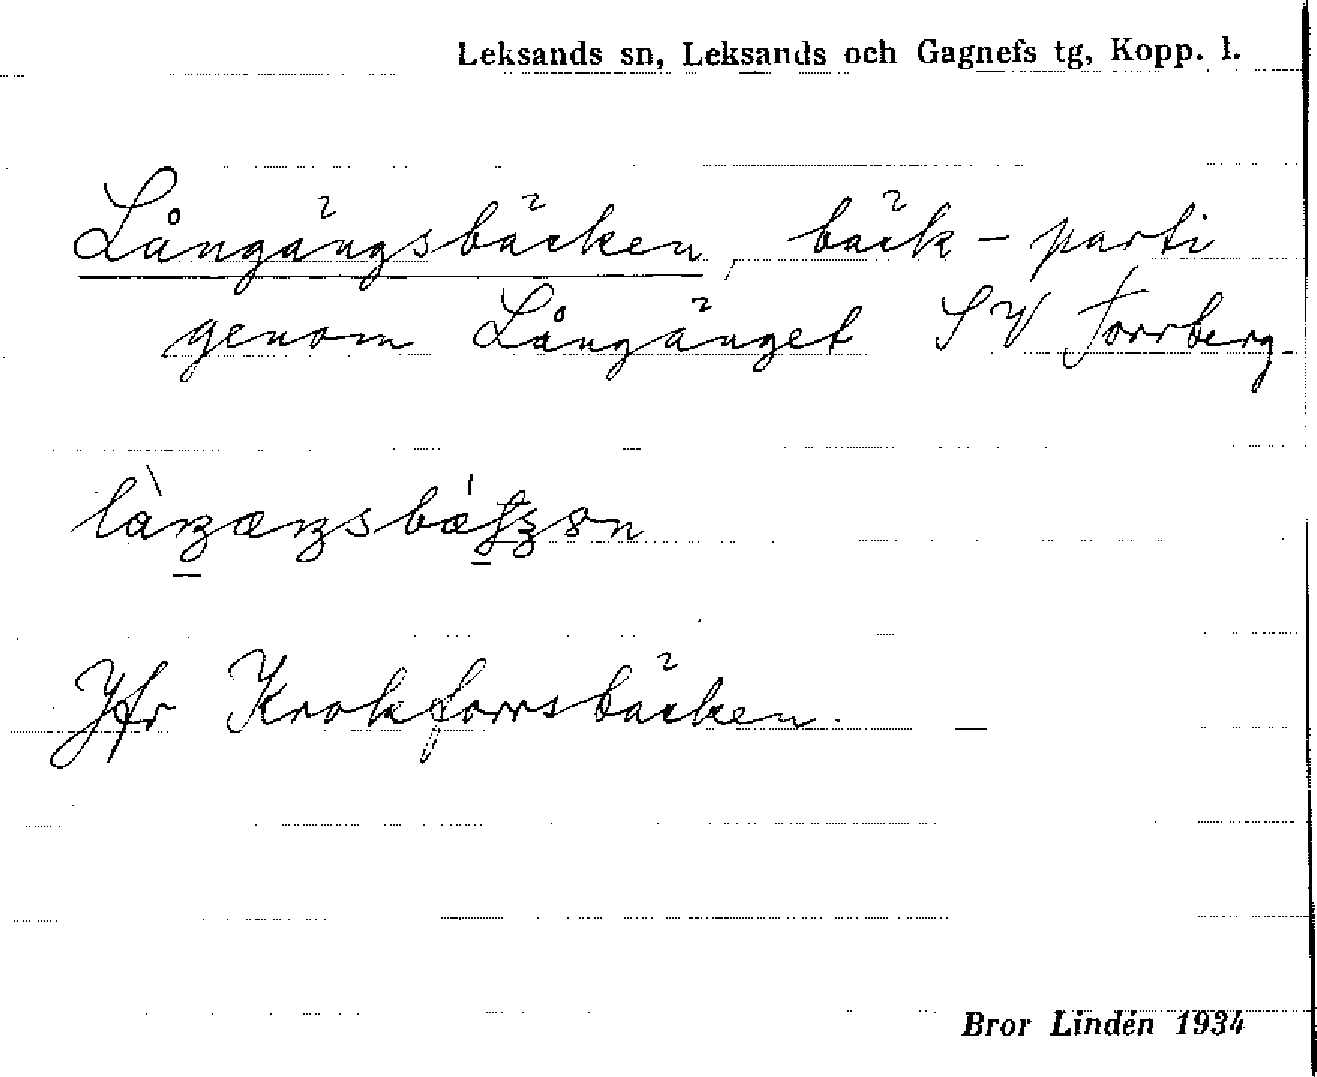 Leksands sn, Leksands och Gagnefs tg, Kopp. l.
Långängsbäcken, bäck-parti
genom Långänget SV Torrberg
Jfr Krokforrsbäcken. —
Bror Lindén 1934